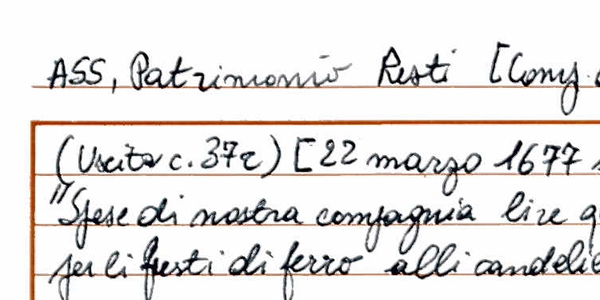 ASS, Patrimonio Resti [Comp.
(Uscita c. 37r) [22 marzo 1677
"Spese di nostra compagnia lire
per li fusti di ferro alli candelie